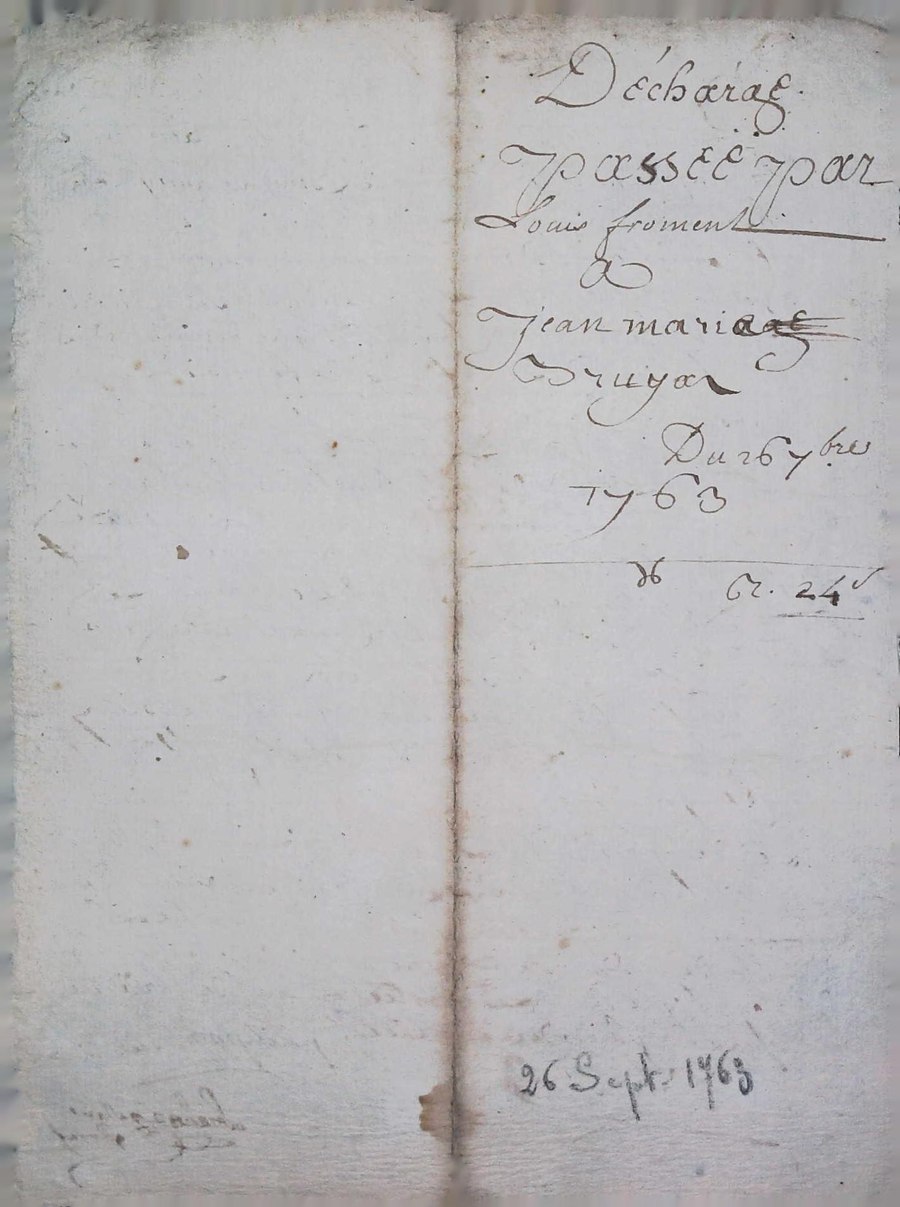 Décharge
passéé par
Louis froment
A
Jean marie
Bruyas
Du 26 7bre
1763
Gr. 24s
26 Sept. 1763